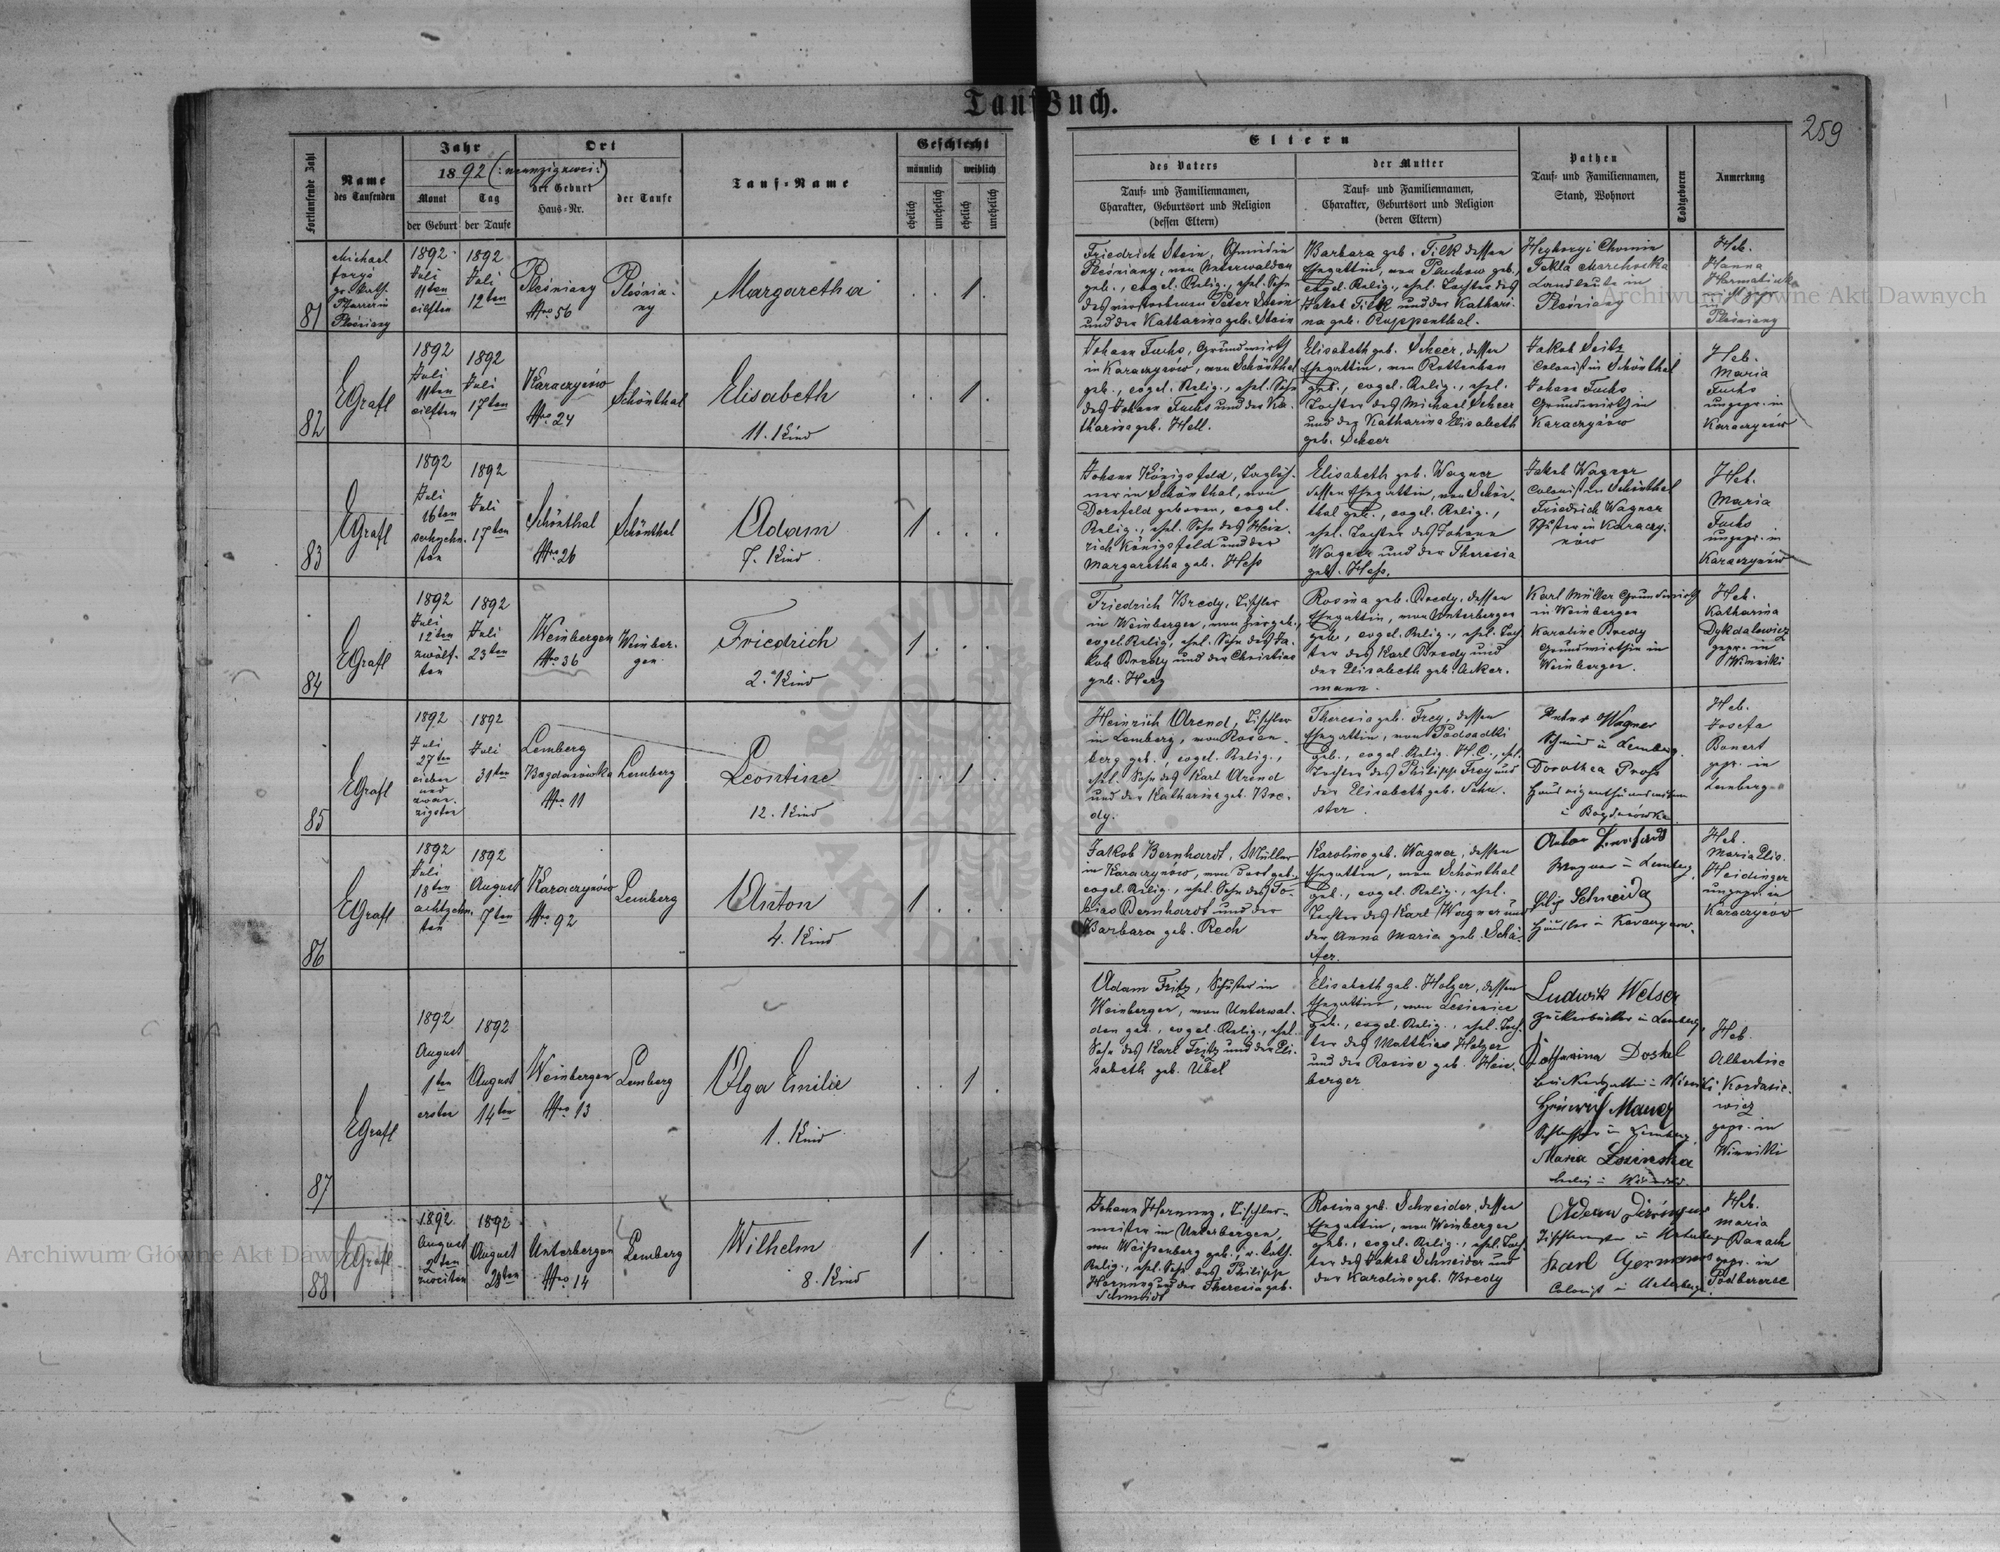 TaufBuch.
259
Fortlaufende Zahl
Name
des Taufenden
Jahr
1892 (:neunzigzwei:)
Monat
Tag
der Geburt
der Taufe
Ort
der Geburt
Haus=Nr.
der Taufe
Tauf=Name
Geschlecht
männlich
weiblich
ehelich
unehelich
ehelich
unehelich
Eltern
des Vaters
Tauf= und Familiennamen,
Charakter, Geburtsort und Religion
(dessen Eltern)
der Mutter
Tauf= und Familiennamen,
Charakter, Geburtsort und Religion
(deren Eltern)
Pathen
Tauf= und Familiennamen,
Stand, Wohnort
Todtgeboren
Anmerkung
81
Michael
gr. kath.
Pfarrer in
Pleśniany
1892
Juli
11ten
eilften
1892
Juli
12ten
Pleśniany
Nro 56
Pleśnia-
ny
Margaretha
1
Friedrich Stein, Schmid in
Pleśniany, von Unterwalden
geb., evgel. Relig., ehel. Sohn
des verstorbenen Peter Stein
und der Katharina geb. Stein
Barbara geb. Filk dessen
Ehegattin, von Pluchow geb.,
evgel. Relig., ehel. Tochter des
Jakob Filk und der Kathari-
na geb. Ruppenthal.
Hryhoryi Chomin
Tekla Marchocka
Landleute in
Pleśniany
Heb.
Hanna
Harmatiuk
ungepr.
in
Pleśniany
82
EGrafl
1892
Juli
11ten
eilften
1892
Juli
17ten
Karaczynów
Nro 24
Schönthal
Elisabeth
11. Kind
1
Johann Fuchs, Grundwirth
in Karaczynów, von Schönthal
geb., evgel. Relig., ehel. Sohn
des Johann Fuchs und der Ka-
tharina geb. Hell.
Elisabeth geb. Scheer, dessen
Ehegattin, von Rottenhan
geb., evgel. Relig., ehel.
Tochter des Michael Scheer
und der Katharina Elisabeth
geb. Scheer
Jakob Seitz
Colonist in Schönthal
Johann Fuchs
Grundwirth in
Karaczynów
Heb.
Maria
Fuchs
ungepr. in
Karaczynów
83
EGrafl
1892
Juli
16ten
sechzehn-
ten
1892
Juli
17ten
Schönthal
Nro 26
Schönthal
Adam
7. Kind
1
Johann Königsfeld, Taglöh-
ner in Schönthal, von
Dornfeld geboren, evgel.
Relig., ehel. Sohn des Hein-
rich Königsfeld und der
Margaretha geb. Hess
Elisabeth geb. Wagner
dessen Ehegattin, von Schön-
thal geb., evgel. Relig.,
ehel. Tochter des Johann
Wagner und der Theresia
geb. Hess.
Jakob Wagner
Colonist in Schönthal
Friedrich Wagner
Schuster in Karaczy-
nów
Heb.
Maria
Fuchs
ungepr. in
Karaczynów
84
EGrafl
1892
Juli
12ten
zwölf-
ten
1892
Juli
23ten
Weinbergen
Nro 36
Weinber-
gen
Friedrich
2. Kind
1
Friedrich Bredy, Tischler
in Weinbergen, von hier geb.,
evgel. Relig., ehel. Sohn des Ja-
kob Bredy und der Christina
geb. Herz
Rosina geb. Bredy, dessen
Ehegattin, von Unterbergen
geb., evgel. Relig., ehel. Toch-
ter des Karl Bredy und
der Elisabeth geb. Acker-
mann.
Karl Müller Grundwirth
in Weinbergen
Karoline Bredy
Grundwirthin in
Weinbergen
Heb.
Katharina
Dykdalewicz
gepr. in
Winniki
85
EGrafl
1892
Juli
27ten
sieben
und
zwan-
zigsten
1892
Juli
31ten
Lemberg
Bogdanówka
Nro 11
Lemberg
Leontine
12. Kind
1
Heinrich Arend, Tischler
in Lemberg, von Rosen-
berg geb., evgel. Relig.,
ehel. Sohn des Karl Arend
und der Katharina geb. Bre-
dy.
Theresia geb. Frey, dessen
Ehegattin, von Podsadki
geb., evgel. Relig. H.C., ehel.
Tochter des Philipp Frey und
der Elisabeth geb. Schu-
ster.
Peter Wagner
Schmid in Lemberg.
Dorothea Pross
in Bogdanówka
Heb.
Josefa
Bonert
gepr. in
Lemberg
86
EGrafl
1892
Juli
18ten
achtzehn-
ten
1892
August
7ten
Karaczynów
Nro 92
Lemberg
Anton
4. Kind
1
Jakob Bernhardt, Müller
in Karaczynów, von geb.,
evgel. Relig., ehel. Sohn des To-
bias Bernhardt und der
Barbara geb. Rech
Karoline geb. Wagner, dessen
Ehegattin, von Schönthal
geb., evgel. Relig., ehel.
Tochter des Karl Wagner und
der Anna Maria geb. Schä-
fer.
Anton
Wagner in Lemberg
Schneida
Händler in Karaczynow.
Heb.
Maria Elis.
Heidinger
ungepr. in
Karaczynów
87
EGrafl
1892
August
1ten
ersten
1892
August
14ten
Weinbergen
Nro 13
Lemberg
Olga Emilie
1. Kind
1
Adam Fritz, Schuster in
Weinbergen, von Unterwal-
den geb., evgel. Relig., ehel.
Sohn des Karl Fritz und der Eli-
sabeth geb. Übel
Elisabeth geb. Holzer, dessen
Ehegattin, von Lesienice
geb., evgel. Relig., ehel. Toch-
ter des Matthias Holzer
und der Rosine geb. Hein-
berger
Ludwik Welser
Zuckerbäcker in Lemberg
Katharina Doskel
Heinrich Mauez
Schlosser in Lemberg
Maria Losinska
Heb.
Albertine
Kordasie-
wicz
gepr. in
Winniki
88
EGrafl
1892
August
2ten
zweiten
1892
August
28ten
Unterbergen
Nro 14
Lemberg
Wilhelm
8. Kind
1
Johann Hornung, Tischler-
meister in Unterbergen,
von Weissenberg geb., r. kath.
Relig., ehel. Sohn des Philipp
Hornung und der Theresia geb.
Schmidt
Rosina geb. Schneider, dessen
Ehegattin, von Weinbergen
geb., evgel. Relig., ehel. Toch-
ter des Jakob Schneider und
der Karoline geb. Bredy
Adam
Tischlermeister in Unterbergen
Karl Germann
Colonist in Unterbergen
Heb.
Maria
Banach
gepr. in
Podberezce
Archiwum Główne Akt Dawnych
Archiwum Główne Akt Dawnych